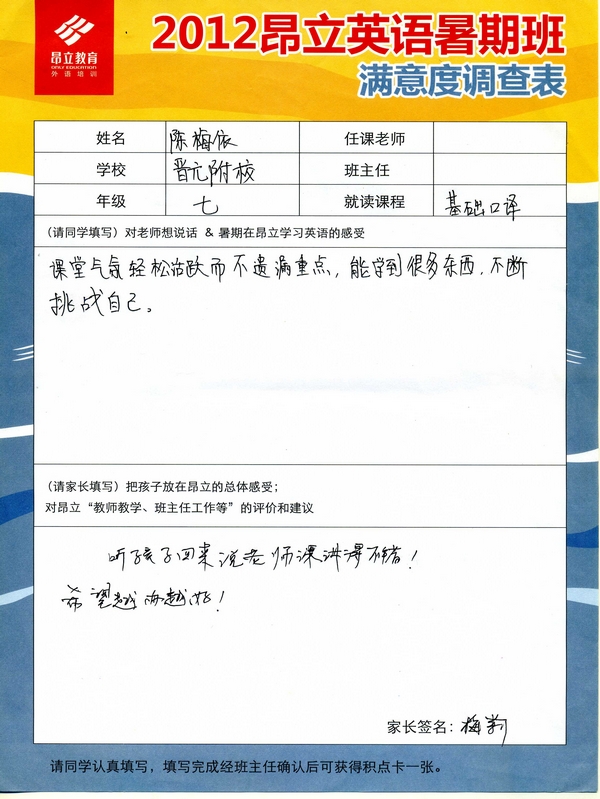 昂立教育
ONLY EDUCATION
外语培训
2012昂立英语暑期班
满意度调查表
姓名 陈梅依 任课老师
学校 晋元附校 班主任
年级 七 就读课程 基础口译
(请同学填写) 对老师想说话 & 暑期在昂立学习英语的感受
课堂气氛轻松活跃而不遗漏重点,能学到很多东西,不断
挑战自己。
(请家长填写) 把孩子放在昂立的总体感受;
对昂立“教师教学、班主任工作等”的评价和建议
听孩子回来说老师课讲得不错!
希望越办越好!
家长签名: 梅
请同学认真填写,填写完成经班主任确认后可获得积点卡一张。